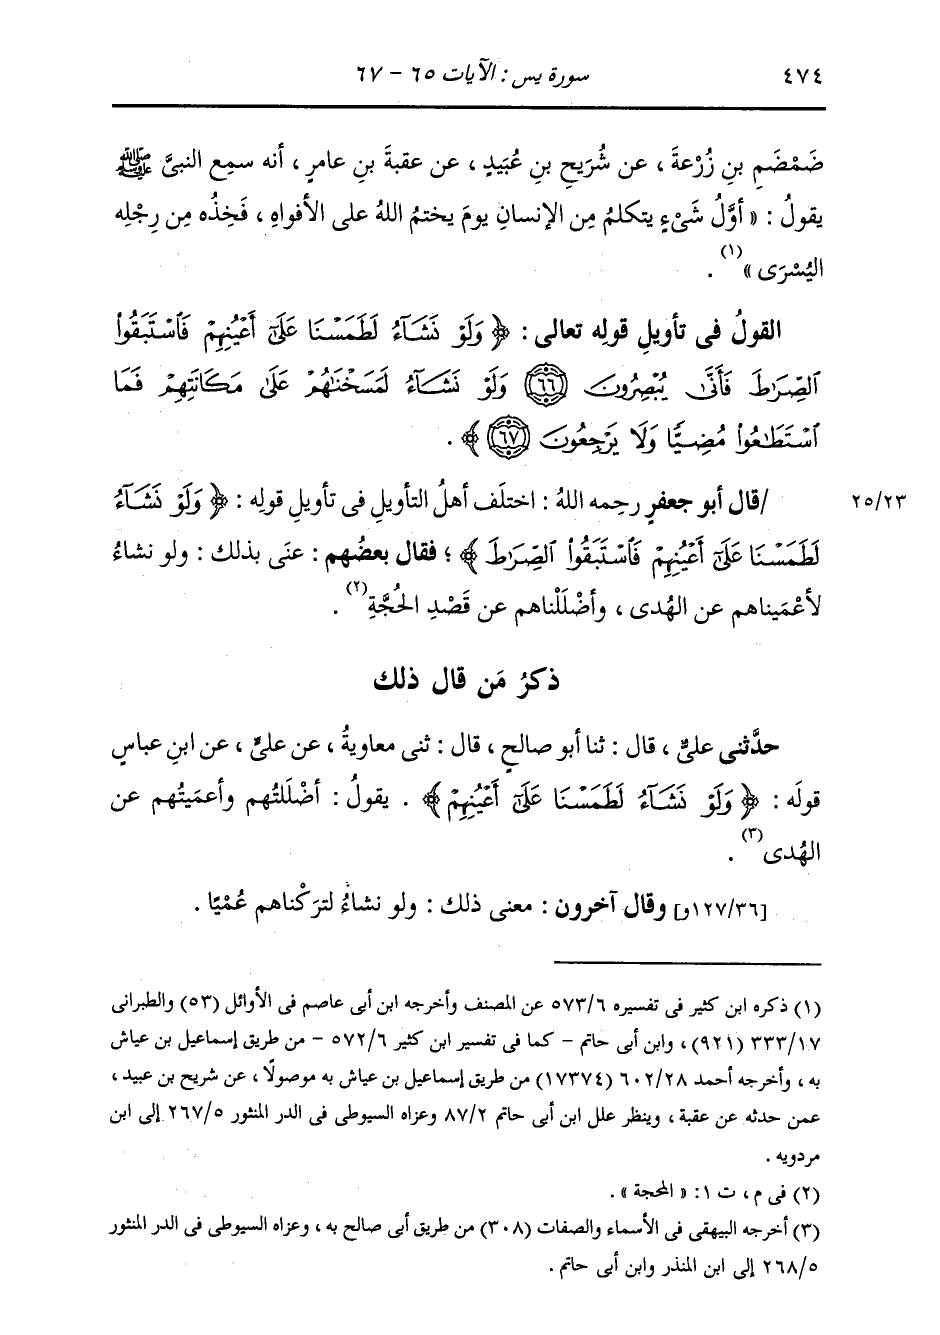 ٤٧٤ سورة يس : الآيات ٦٥ - ٦٧
ضَمْضَمِ بنِ زُرْعةَ ، عن شُرَيحِ بنِ عُبَيدٍ ، عن عقبةَ بنِ عامرٍ ، أنه سمِع النبىَّ ﷺ
يقولُ : « أوَّلُ شَىْءٍ يتكلمُ مِن الإنسانِ يومَ يختمُ اللهُ على الأفواهِ ، فَخِذُه مِن رِجْلِه
اليُسْرَى »(١) .
القولُ فى تأويلِ قولِه تعالى : ﴿ وَلَوْ نَشَآءُ لَطَمَسْنَا عَلَىٰٓ أَعْيُنِهِمْ فَٱسْتَبَقُوا۟
ٱلصِّرَٰطَ فَأَنَّىٰ يُبْصِرُونَ ٦٦ وَلَوْ نَشَآءُ لَمَسَخْنَٰهُمْ عَلَىٰ مَكَانَتِهِمْ فَمَا
ٱسْتَطَٰعُوا۟ مُضِيًّا وَلَا يَرْجِعُونَ ٦٧ ﴾ .
٢٥/٢٣ /قال أبو جعفرٍ رحِمه اللهُ : اختلَف أهلُ التأويلِ فى تأويلِ قولِه : ﴿ وَلَوْ نَشَآءُ
لَطَمَسْنَا عَلَىٰٓ أَعْيُنِهِمْ فَٱسْتَبَقُوا۟ ٱلصِّرَٰطَ ﴾ ؛ فقال بعضُهم : عنَى بذلك : ولو نشاءُ
لأَعْمَيناهم عن الهُدى ، وأضْلَلْناهم عن قَصْدِ الحُجَّةِ(٢) .
ذكرُ مَن قال ذلك
حدَّثنى علىٌّ ، قال : ثنا أبو صالحٍ ، قال : ثنى معاويةُ ، عن علىٍّ ، عن ابنِ عباسٍ
قولَه : ﴿ وَلَوْ نَشَآءُ لَطَمَسْنَا عَلَىٰٓ أَعْيُنِهِمْ ﴾ . يقولُ : أضْلَلتُهم وأعمَيتُهم عن
الهُدى(٣) .
[١٢٧/٣٦و] وقال آخرون : معنى ذلك : ولو نشاءُ لتركْناهم عُمْيًا .
(١) ذكره ابن كثير فى تفسيره ٥٧٣/٦ عن المصنف وأخرجه ابن أبى عاصم فى الأوائل (٥٣) والطبرانى
٣٣٣/١٧ (٩٢١) ، وابن أبى حاتم - كما فى تفسير ابن كثير ٥٧٢/٦ - من طريق إسماعيل بن عياش
به ، وأخرجه أحمد ٦٠٢/٢٨ (١٧٣٧٤) من طريق إسماعيل بن عياش به موصولًا ، عن شريح بن عبيد ،
عمن حدثه عن عقبة ، وينظر علل ابن أبى حاتم ٨٧/٢ وعزاه السيوطى فى الدر المنثور ٢٦٧/٥ إلى ابن
مردويه .
(٢) فى م ، ت ١ : « المحجة » .
(٣) أخرجه البيهقى فى الأسماء والصفات (٣٠٨) من طريق أبى صالح به ، وعزاه السيوطى فى الدر المنثور
٢٦٨/٥ إلى ابن المنذر وابن أبى حاتم .